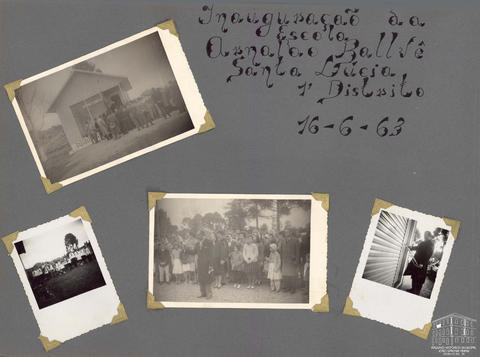 Inauguração da
Escola
Arnaldo Ballvê
Santa Lúcia
1º Distrito
16-6-63
ARQUIVO HISTÓRICO MUNICIPAL
JOÃO SPADARI ADAMI